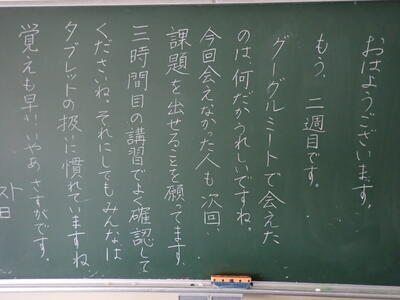 おはようございます。
もう、二週目です。
グーグルミートで会えた
のは、何だかうれしいですね。
今回会えなかった人も次回、
課題を出せることを願ってます。
三時間目の講習でよく確認して
くださいね。それにしてもみんなは
タブレットの扱いに慣れていますね
覚えも早い、いやあ さすがです。
スト
日